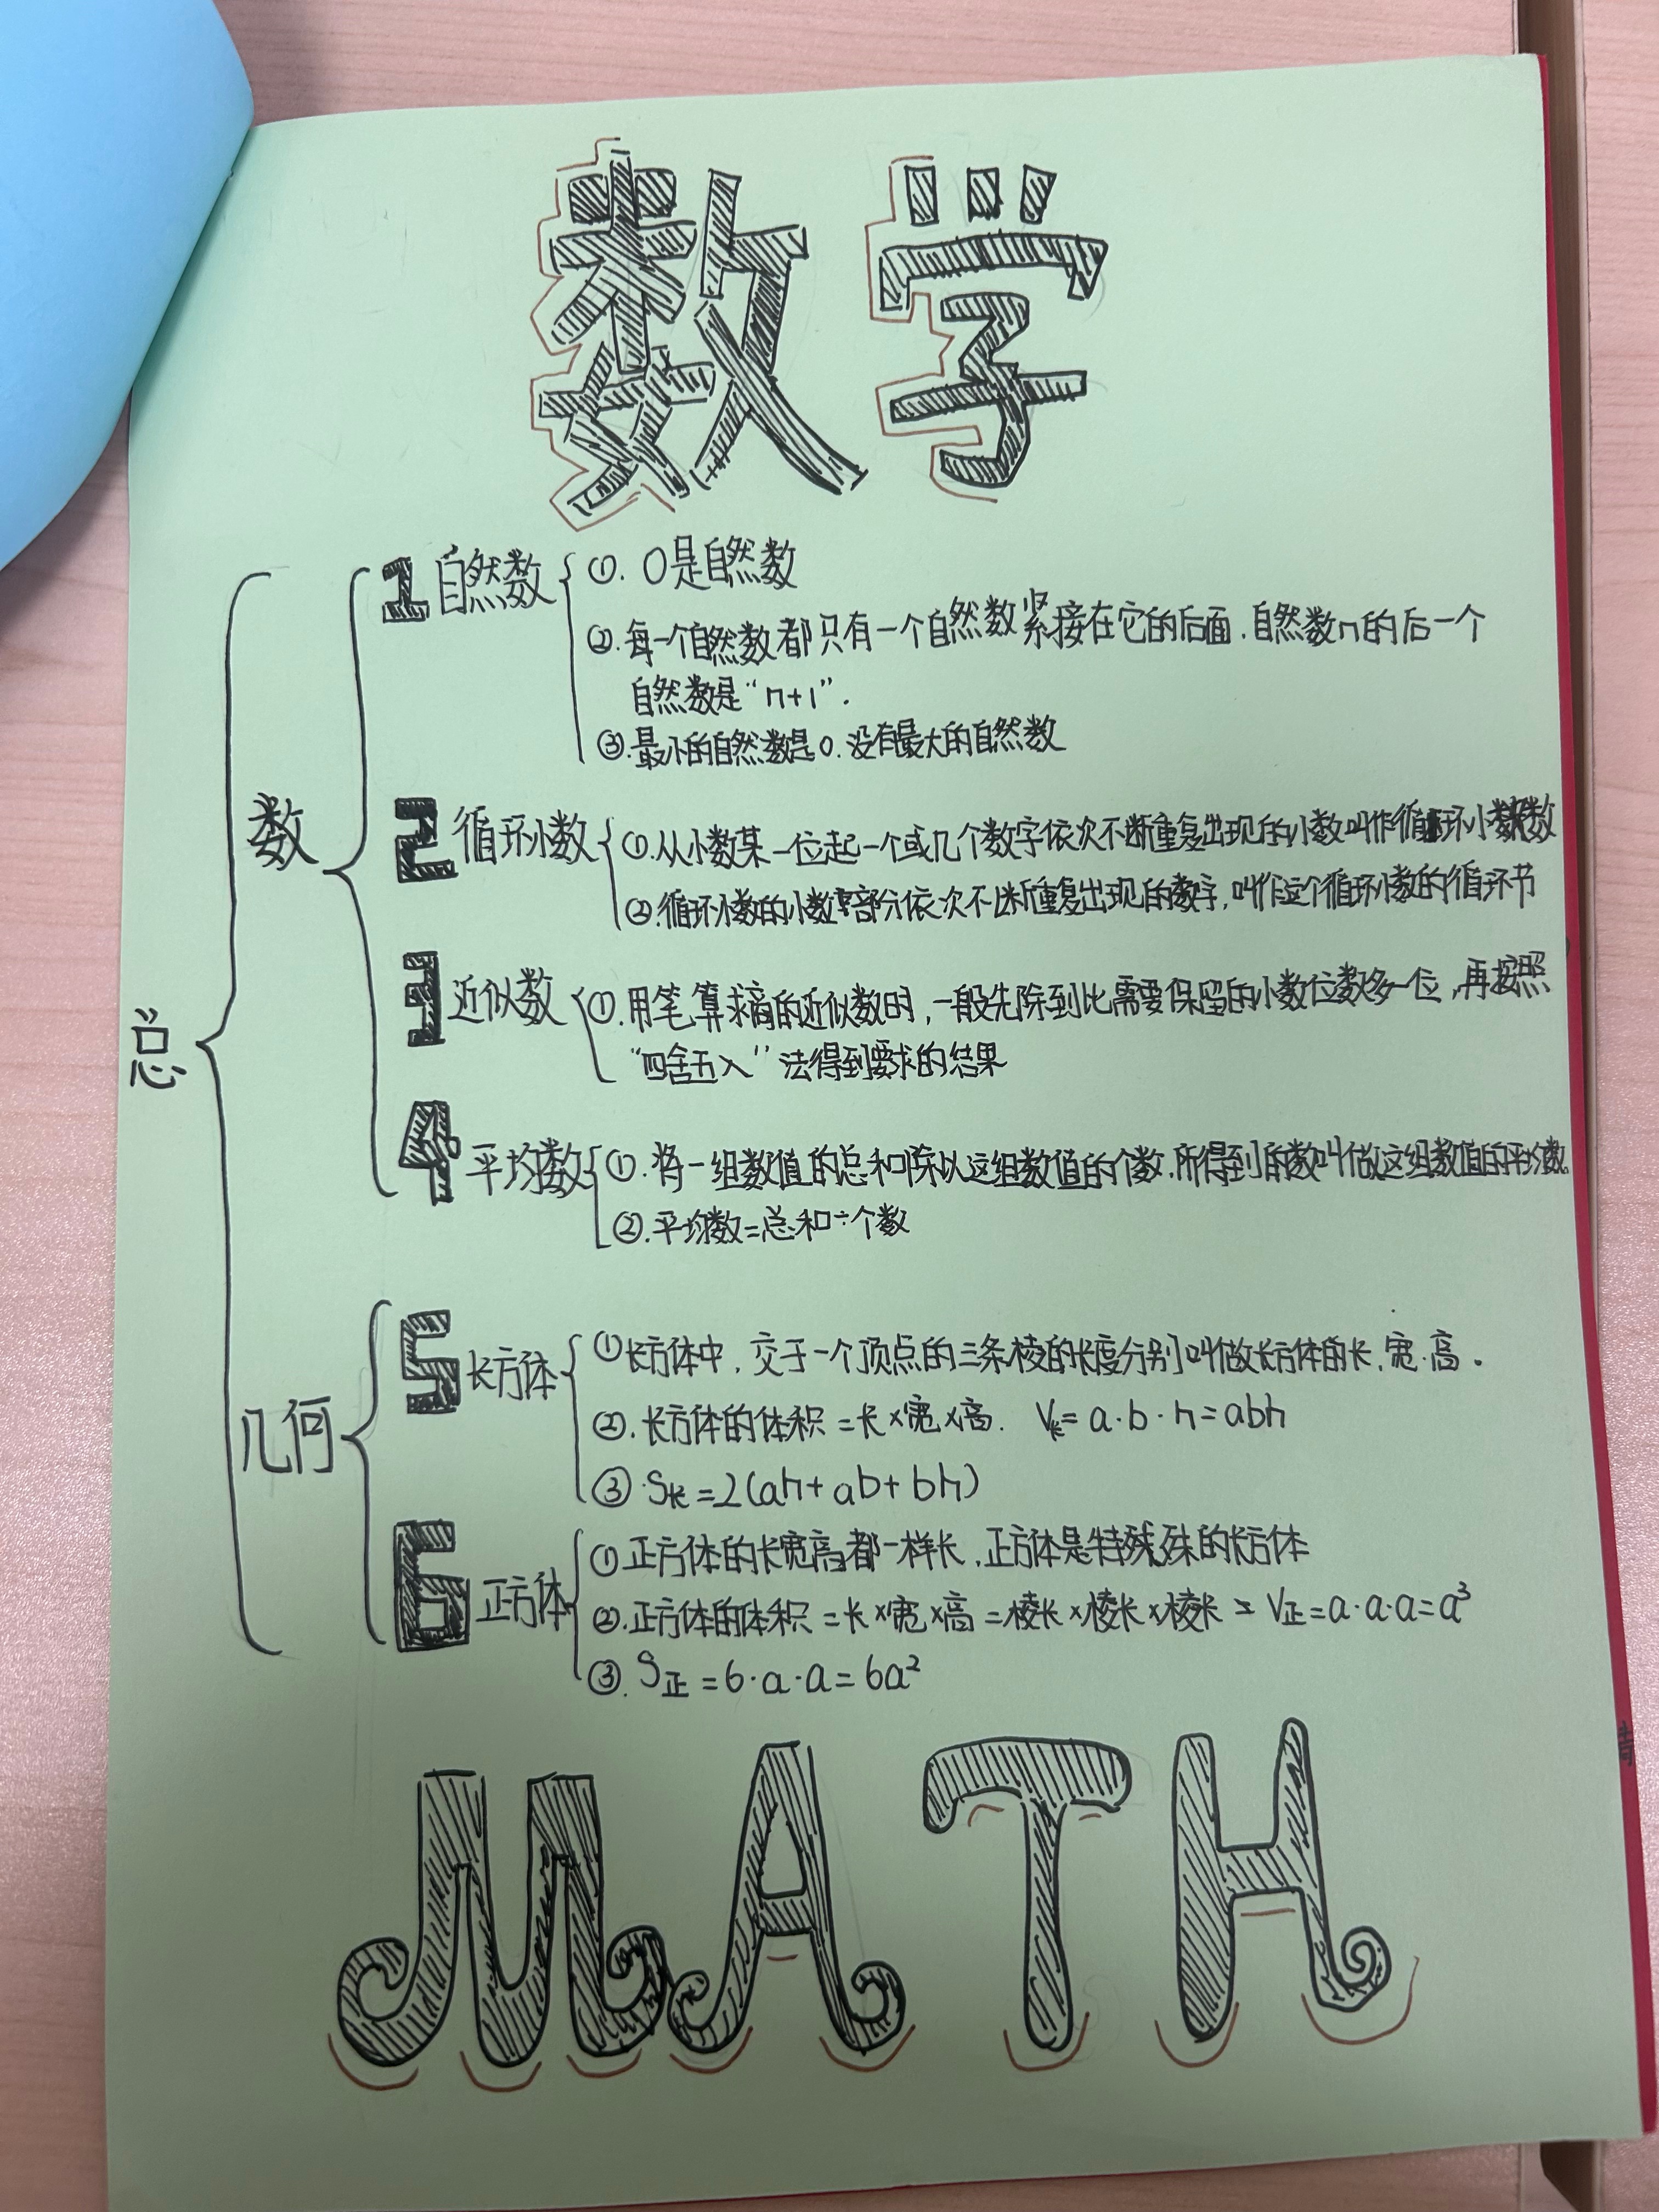 数学
总
数
1 自然数
①. 0是自然数
②. 每一个自然数都只有一个自然数紧接在它的后面.自然数n的后一个
自然数是“n+1”.
③.最小的自然数是0.没有最大的自然数
2 循环小数
①.从小数某一位起一个或几个数字依次不断重复出现的小数叫作循环小数
②.循环小数的小数部分依次不断重复出现的数字,叫作这个循环小数的循环节
3 近似数
①.用笔算求商的近似数时,一般先除到比需要保留的小数位数多一位,再按照
“四舍五入”法得到要求的结果
4 平均数
①.将一组数值的总和除以这组数值的个数.所得到的数叫做这组数值的平均数.
②.平均数=总和÷个数
几何
5 长方体
①长方体中,交于一个顶点的三条棱的长度分别叫做长方体的长.宽.高.
②.长方体的体积=长×宽×高. V长=a·b·h=abh
③ S长=2(ah+ab+bh)
6 正方体
①正方体的长宽高都一样长,正方体是特殊的长方体
②.正方体的体积=长×宽×高=棱长×棱长×棱长= V正=a·a·a=a³
③. S正=6·a·a=6a²
MATH